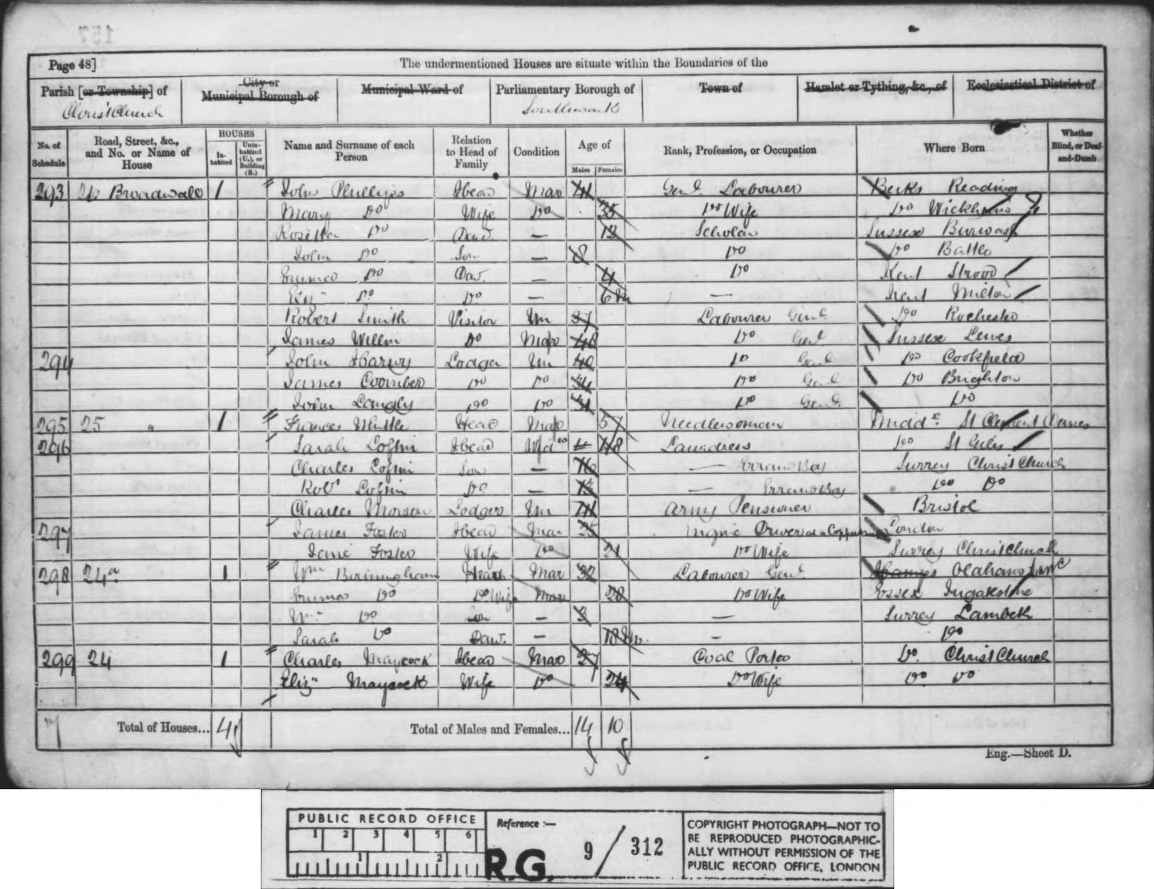 157
Page 48]
The undermentioned Houses are situate within the Boundaries of the
Parish [or Township] of
City or
Municipal Borough of
Municipal Ward of
Parliamentary Borough of
Town of
Hamlet or Tything, &c., of
Ecclesiastical District of
Christ Church
Southwark
No. of Schedule
Road, Street, &c., and No. or Name of House
HOUSES
In-habited
Unin-habited (U.), or Building (B.)
Name and Surname of each Person
Relation to Head of Family
Condition
Age of
Males
Females
Rank, Profession, or Occupation
Where Born
Whether Blind, or Deaf-and-Dumb
293 Broadwall 1 John Phillips Head Mar 41 Genl Labourer Berks Reading
Mary Do Wife Do 35 Do Wife Do
Do Daur — 12 Scholar Sussex Burwash
John Do Son — 8 Do Do Battle
Emma Do Daur — 4 Do Kent Strood
Do Do — 6 m — Kent Milton
Robert Smith Visitor Un 37 Labourer Genl Do Rochester
James Do Do Genl Sussex Lewes
294 John Harvy Lodger Un 40 Do Genl Do Cookfield
James Coomber Do Do 44 Do Genl Do Brighton
John Langly Do Do 41 Do Genl Do
295 25 " 1 Frances Head 57 Needlewoman Middx St Clement Danes
296 Sarah Coffin Head Wid 48 Laundress Do St Giles
Charles Coffin Son — 16 — Errand Boy Surrey Christ Church
Robt Coffin Do — 13 — Errand Boy Do Do
Charles Lodger Un Army Pensioner Bristol
297 James Foster Head Mar 25 Engine Driver London
Jane Foster Wife Do 21 Do Wife Surrey Christ Church
298 24a 1 Wm Birmingham Head Mar 32 Labourer Genl
Emma Do Do Wife Mar 28 Do Wife Essex Ingatestone
Wm Do Son — 3 — Surrey Lambeth
Sarah Do Daur — — Do
299 24 1 Charles Maycock Head Mar 27 Coal Porter Do Christ Church
Eliza Maycock Wife Do 24 Do Wife Do Do
Total of Houses... 4
Total of Males and Females... 14 10
Eng.—Sheet D.
PUBLIC RECORD OFFICE
1 2 3 4 5 6
1 2
Reference :—
R.G. 9/312
COPYRIGHT PHOTOGRAPH—NOT TO
BE REPRODUCED PHOTOGRAPHIC-
ALLY WITHOUT PERMISSION OF THE
PUBLIC RECORD OFFICE, LONDON